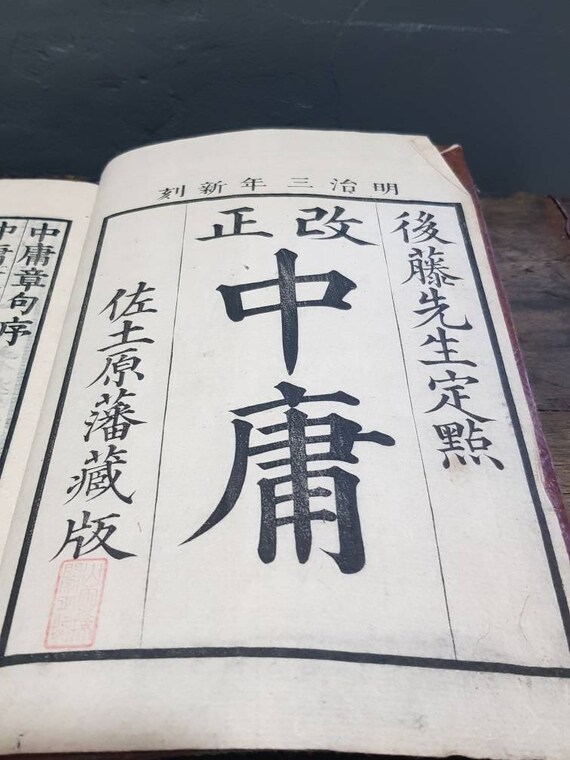 明治三年新刻
後藤先生定點
改正
中庸
佐土原藩藏版
中庸章句序